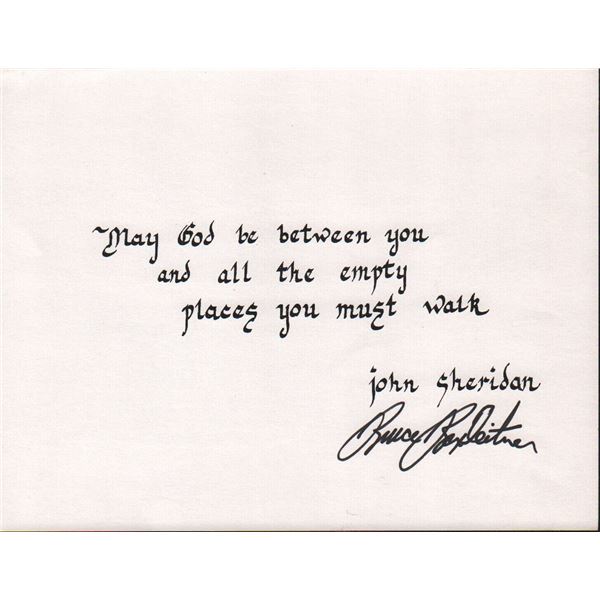 May God be between you
and all the empty
places you must walk
john sheridan
Bruce Boxleitner